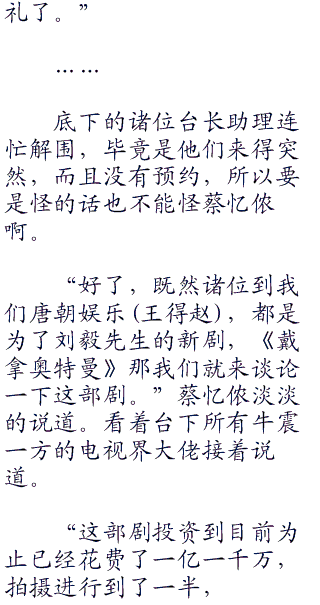 礼了。”
……
底下的诸位台长助理连
忙解围，毕竟是他们来得突
然，而且没有预约，所以要
是怪的话也不能怪蔡忆侬
啊。
“好了，既然诸位到我
们唐朝娱乐(王得赵)，都是
为了刘毅先生的新剧，《戴
拿奥特曼》那我们就来谈论
一下这部剧。”蔡忆侬淡淡
的说道。看着台下所有牛震
一方的电视界大佬接着说
道。
“这部剧投资到目前为
止已经花费了一亿一千万，
拍摄进行到了一半，